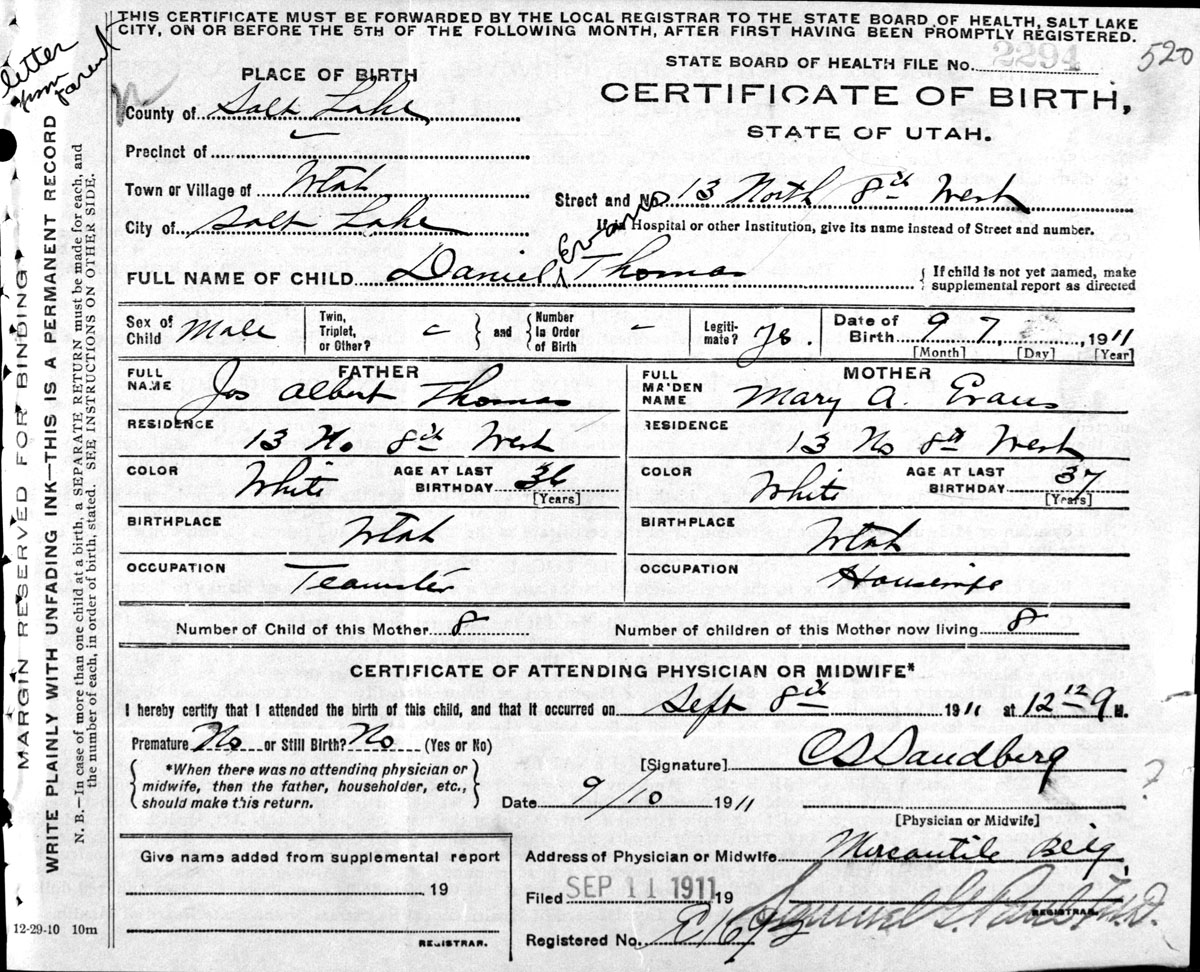 THIS CERTIFICATE MUST BE FORWARDED BY THE LOCAL REGISTRAR TO THE STATE BOARD OF HEALTH, SALT LAKE
CITY, ON OR BEFORE THE 5TH OF THE FOLLOWING MONTH, AFTER FIRST HAVING BEEN PROMPTLY REGISTERED.
letter
from
parent
520
STATE BOARD OF HEALTH FILE No. 2294
CERTIFICATE OF BIRTH,
STATE OF UTAH.
PLACE OF BIRTH
County of Salt Lake
Precinct of
Town or Village of Utah
City of Salt Lake
Street and No. 13 North 8th West
If in Hospital or other Institution, give its name instead of Street and number.
FULL NAME OF CHILD Daniel Evans Thomas
{ If child is not yet named, make
supplemental report as directed
Sex of Child Male
Twin, Triplet, or Other? -
and
Number In Order of Birth -
Legitimate? yes.
Date of Birth 9 7, 1911
[Month] [Day] [Year]
FATHER
FULL NAME Jos Albert Thomas
RESIDENCE 13 No 8th West
COLOR White AGE AT LAST BIRTHDAY 36 [Years]
BIRTHPLACE Utah
OCCUPATION Teamster
MOTHER
FULL MAIDEN NAME Mary A. Evans
RESIDENCE 13 No 8th West
COLOR White AGE AT LAST BIRTHDAY 37 [Years]
BIRTHPLACE Utah
OCCUPATION Housewife
Number of Child of this Mother 8 Number of children of this Mother now living 8
CERTIFICATE OF ATTENDING PHYSICIAN OR MIDWIFE*
I hereby certify that I attended the birth of this child, and that it occurred on Sept 8th 1911 at 12 M.
Premature No or Still Birth? No (Yes or No)
{ *When there was no attending physician or
midwife, then the father, householder, etc.,
should make this return. }
[Signature] C S Sandberg
?
Date 9/10 1911
[Physician or Midwife]
Give name added from supplemental report
19
REGISTRAR.
Address of Physician or Midwife Mercantile
Filed SEP 11 1911 19
REGISTRAR.
Registered No.
12-29-10 10m
MARGIN RESERVED FOR BINDING
WRITE PLAINLY WITH UNFADING INK—THIS IS A PERMANENT RECORD
N. B.—In case of more than one child at a birth, a SEPARATE RETURN must be made for each, and
the number of each, in order of birth, stated. SEE INSTRUCTIONS ON OTHER SIDE.